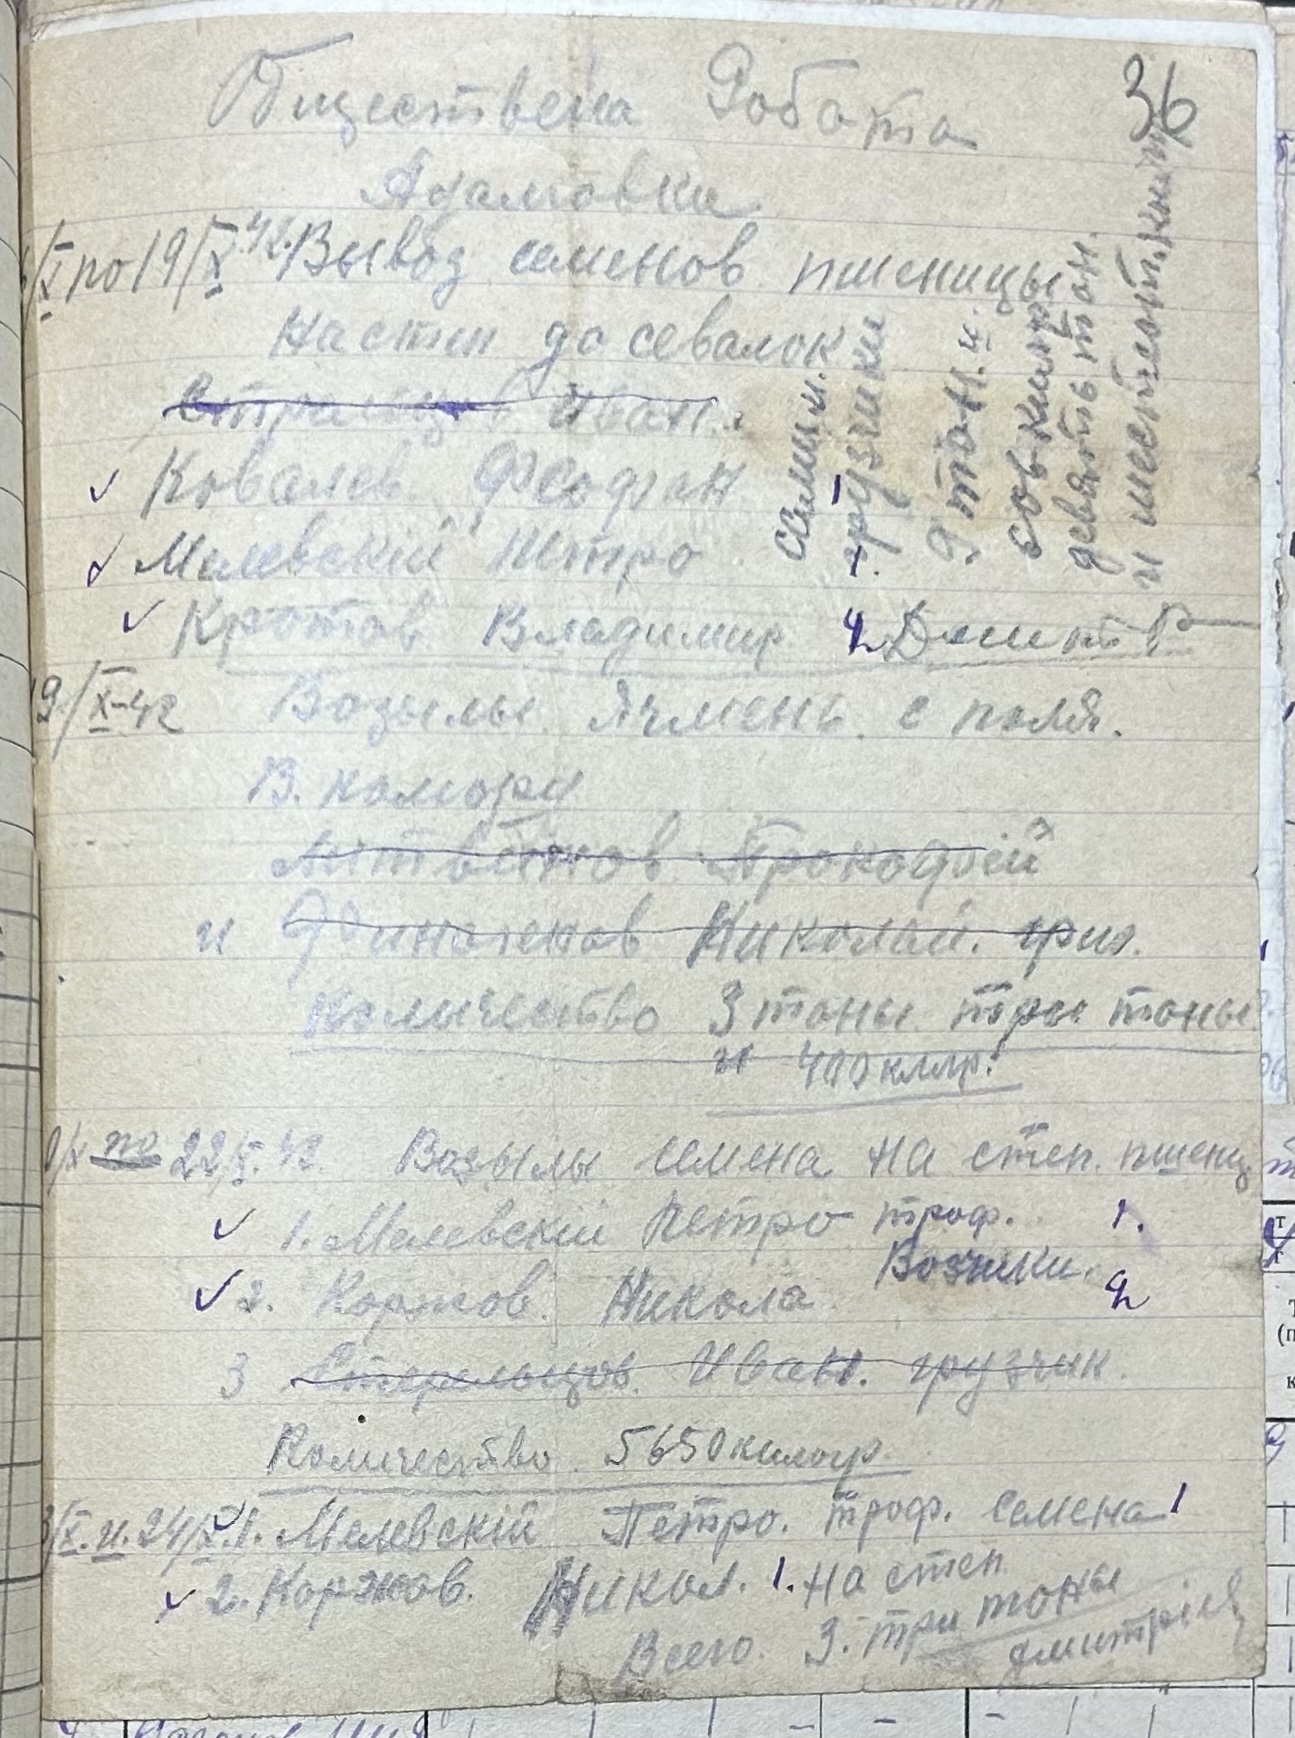 36
Обществена Робота
Адамовки
/X по 19/X 42. Вывоз семенов пшеницы
На степ до севалок
Иван.
✓ Ковалев Феофан 1
✓ Малевскій Петро 1.
✓ Кротов Владимир 2
грузчики
9 тон. и
девять тон.
и шестьсот
19/X-42 Возылы Ячмень с поля.
В. комору
Литвинов Прокофій
и Николай. груз.
Количество 3 тоны три тоны
и 400 клгр.
/X по 22/X. 42. Возылы семена на степ. пшениц
✓ 1. Малевскій Петро троф. 1.
Возчики.
✓ 2. Коржов. Никола 2
3 Стрельцов Иван. грузчик.
Количество. 5650 килогр.
/X. и. 24/X. 1. Малевскій Петро. троф. семена 1
✓ 2. Коржов. Никол. 1. на степ.
Всего. 3. три тоны